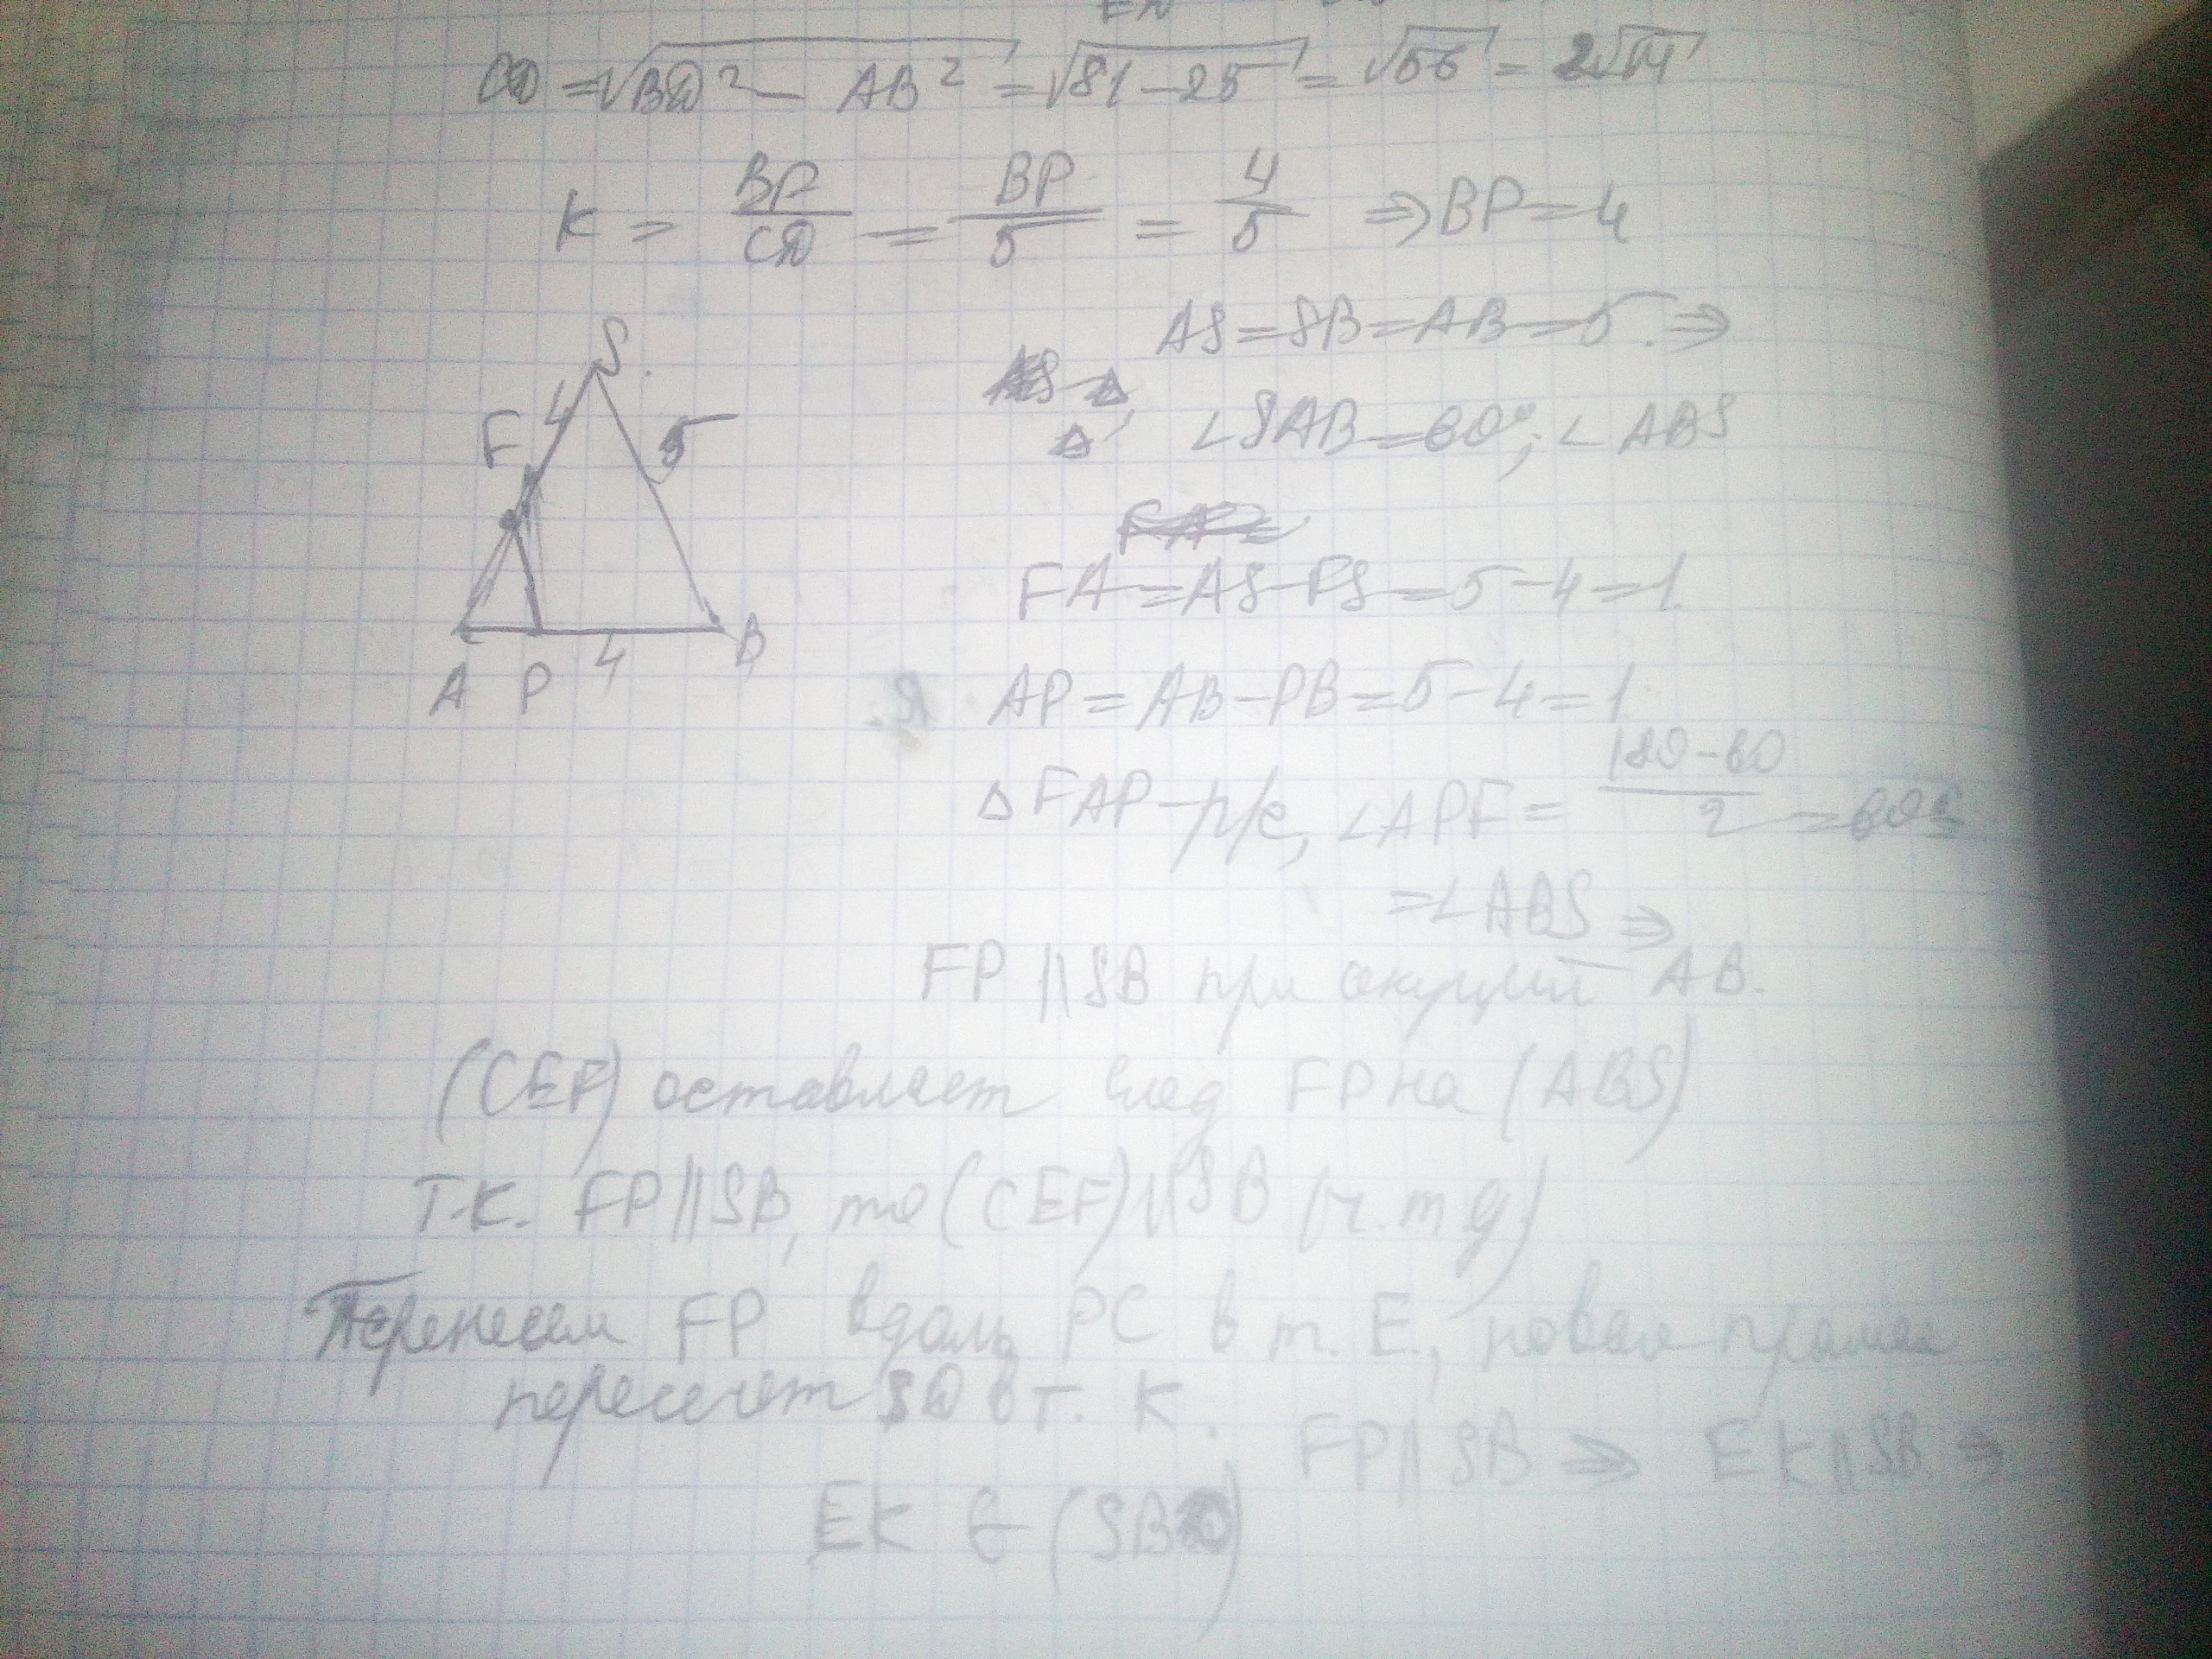 CD = √BD² - AB² = √81-25 = √56 = 2√14
K = BP/CD = BP/5 = 4/5 ⇒ BP = 4
AS = SB = AB = 5 ⇒
∠SAB = 60°; ∠ABS
S
4
F
5
A P 4 B
FA = AS - FS = 5 - 4 = 1.
AP = AB - PB = 5 - 4 = 1
△FAP - р/с, ∠APF = (180-60)/2 = 60 =
= ∠ABS ⇒
FP || SB при секущий AB.
(CEF) оставляет след FP на (ABS)
Т.к. FP || SB, то (CEF) || SB (ч.т.д)
Перенесем FP вдоль PC в т. E, новая прямая
пересечет SD в т. K.
FP || SB ⇒ EK || SB ⇒
EK ∈ (SBD)